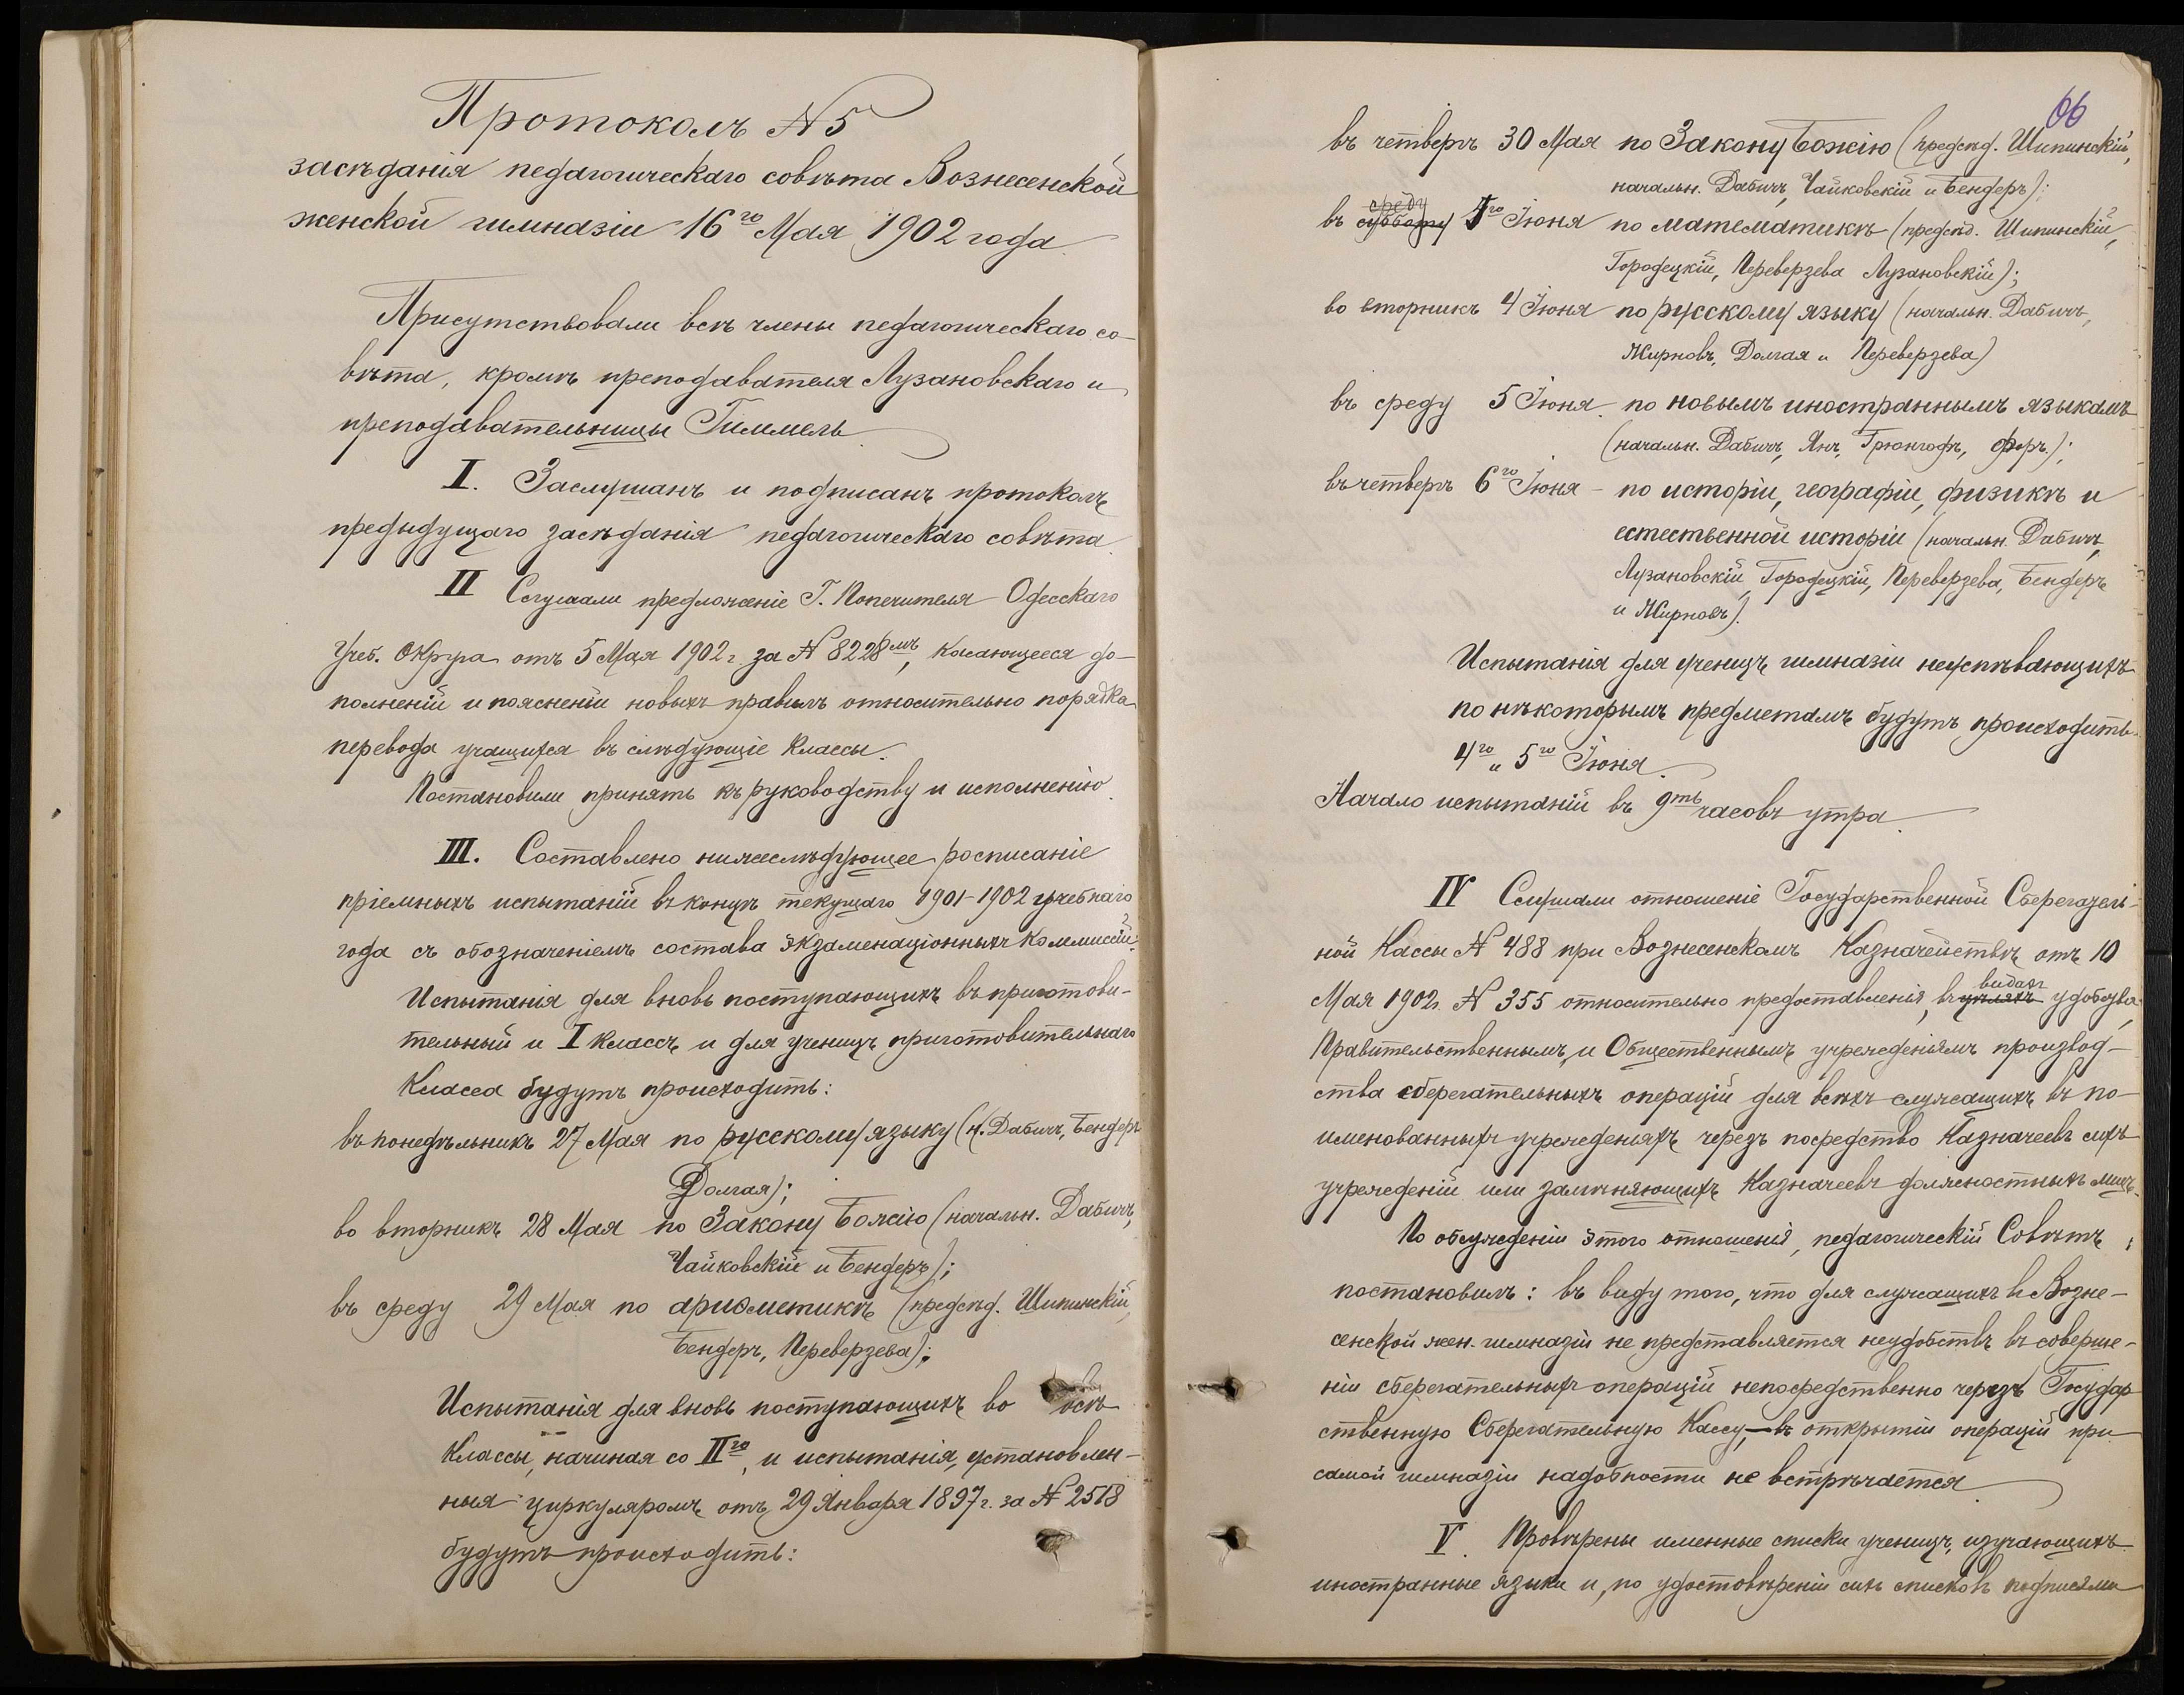 Протоколъ № 5
засѣданія педагогическаго совѣта Вознесенской
женской гимназіи 16го Мая 1902 года.
Присутствовали всѣ члены педагогическаго со-
вѣта, кромѣ преподавателя Лузановскаго и
преподавательницы Гиммель.
I. Заслушанъ и подписанъ протоколъ
предыдущаго засѣданія педагогическаго совѣта.
II Слушали предложеніе Г. Попечителя Одесскаго
Учеб. Округа отъ 5 Мая 1902 г. за № 8228мъ, касающееся до-
полненій и поясненій новыхъ правилъ относительно порядка
перевода учащихся въ слѣдующіе классы.
Постановили принять къ руководству и исполненію.
III. Составлено нижеслѣдующее росписаніе
пріемныхъ испытаній въ концѣ текущаго 1901-1902 учебнаго
года съ обозначеніемъ состава экзаменаціонныхъ коммиссій:
Испытанія для вновь поступающихъ въ приготови-
тельный и I классъ и для ученицъ приготовительнаго
класса будутъ происходить:
въ понедѣльникъ 27 Мая по русскому языку (н. Дабичъ, Бендеръ
Долгая);
во вторникъ 28 Мая по Закону Божію (начальн. Дабичъ,
Чайковскій и Бендеръ);
въ среду 29 Мая по ариѳметикѣ (предсѣд. Шипинскій,
Бендеръ, Переверзева);
Испытанія для вновь поступающихъ во всѣ
классы, начиная со IIго, и испытанія, установлен-
ныя циркуляромъ отъ 29 Января 1897 г. за № 2518
будутъ происходить:
66
въ четвергъ 30 Мая по Закону Божію (предсѣд. Шипинскій,
начальн. Дабичъ, Чайковскій и Бендеръ);
среду
въ субботу 1го Іюня по математикѣ (предсѣд. Шипинскій,
Городецкій, Переверзева Лузановскій);
во вторникъ 4 Іюня по русскому языку (начальн. Дабичъ,
Жирновъ, Долгая и Переверзева)
въ среду 5 Іюня по новымъ иностраннымъ языкамъ
(начальн. Дабичъ, Янъ, Грюнгофъ, Форъ.);
въ четвергъ 6го Іюня - по исторіи, географіи, физикѣ и
естественной исторіи (начальн. Дабичъ,
Лузановскій, Городецкій, Переверзева, Бендеръ
и Жирновъ).
Испытанія для ученицъ гимназіи неуспѣвающихъ
по нѣкоторымъ предметамъ будутъ происходить
4го и 5го Іюня.
Начало испытаній въ 9ть часовъ утра.
IV Слушали отношеніе Государственной Сберегатель-
ной Кассы № 488 при Вознесенскомъ Казначействѣ отъ 10
видахъ
Мая 1902 г. № 355 относительно предоставленія, въ цѣляхъ удобства,
Правительственнымъ и Общественнымъ учрежденіямъ производ-
ства сберегательныхъ операцій для всѣхъ служащихъ въ по-
именованныхъ учрежденіяхъ чрезъ посредство Казначеевъ сихъ
учрежденій или замѣняющихъ Казначеевъ должностныхъ лицъ.
По обсужденіи этого отношенія, педагогическій Совѣтъ
постановилъ: въ виду того, что для служащихъ въ Возне-
сенской жен. гимназіи не представляется неудобствъ въ соверше-
ніи сберегательныхъ операцій непосредственно чрезъ Государ
ственную Сберегательную Кассу, — въ открытіи операцій при
самой гимназіи надобности не встрѣчается.
V. Провѣрены именные списки ученицъ, изучающихъ
иностранные языки и, по удостовѣреніи сихъ списковъ подписями